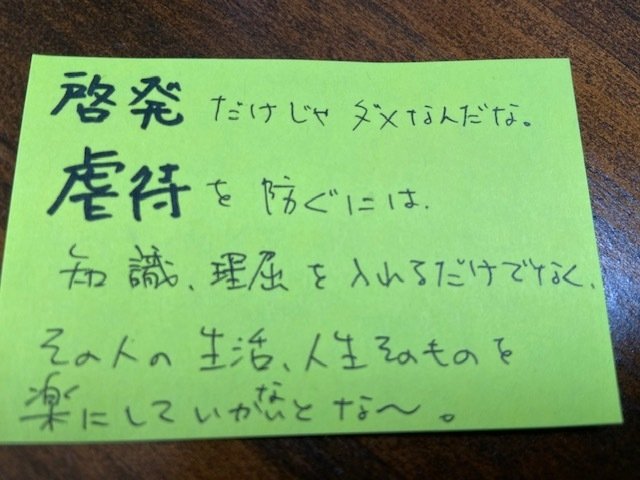 啓発だけじゃダメなんだな。
虐待を防ぐには、
知識、理屈を入れるだけでなく、
その人の生活、人生そのものを
楽にしていかないとな〜。